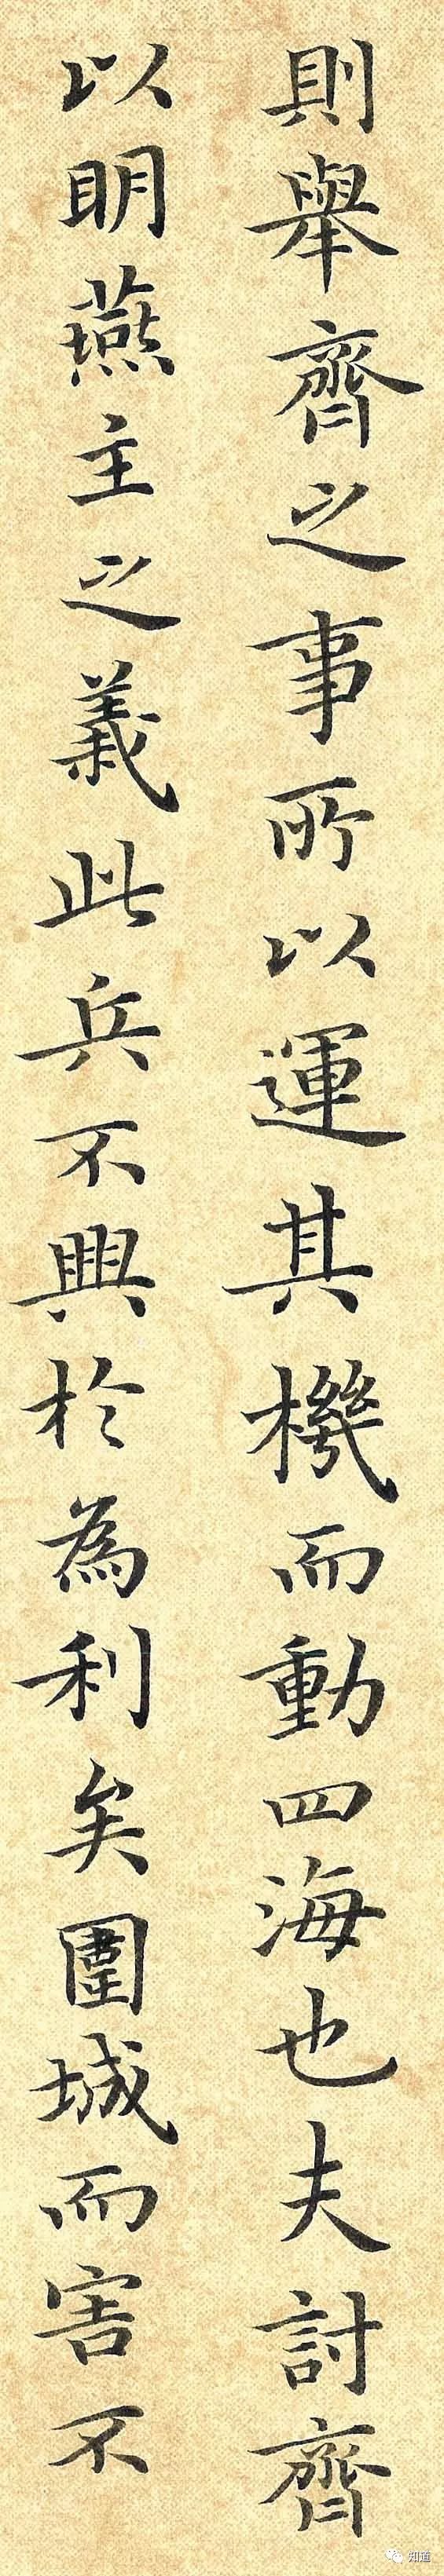 則舉齊之事所以運其機而動四海也夫討齊
以明燕主之義此兵不興於為利矣圍城而害不
知道